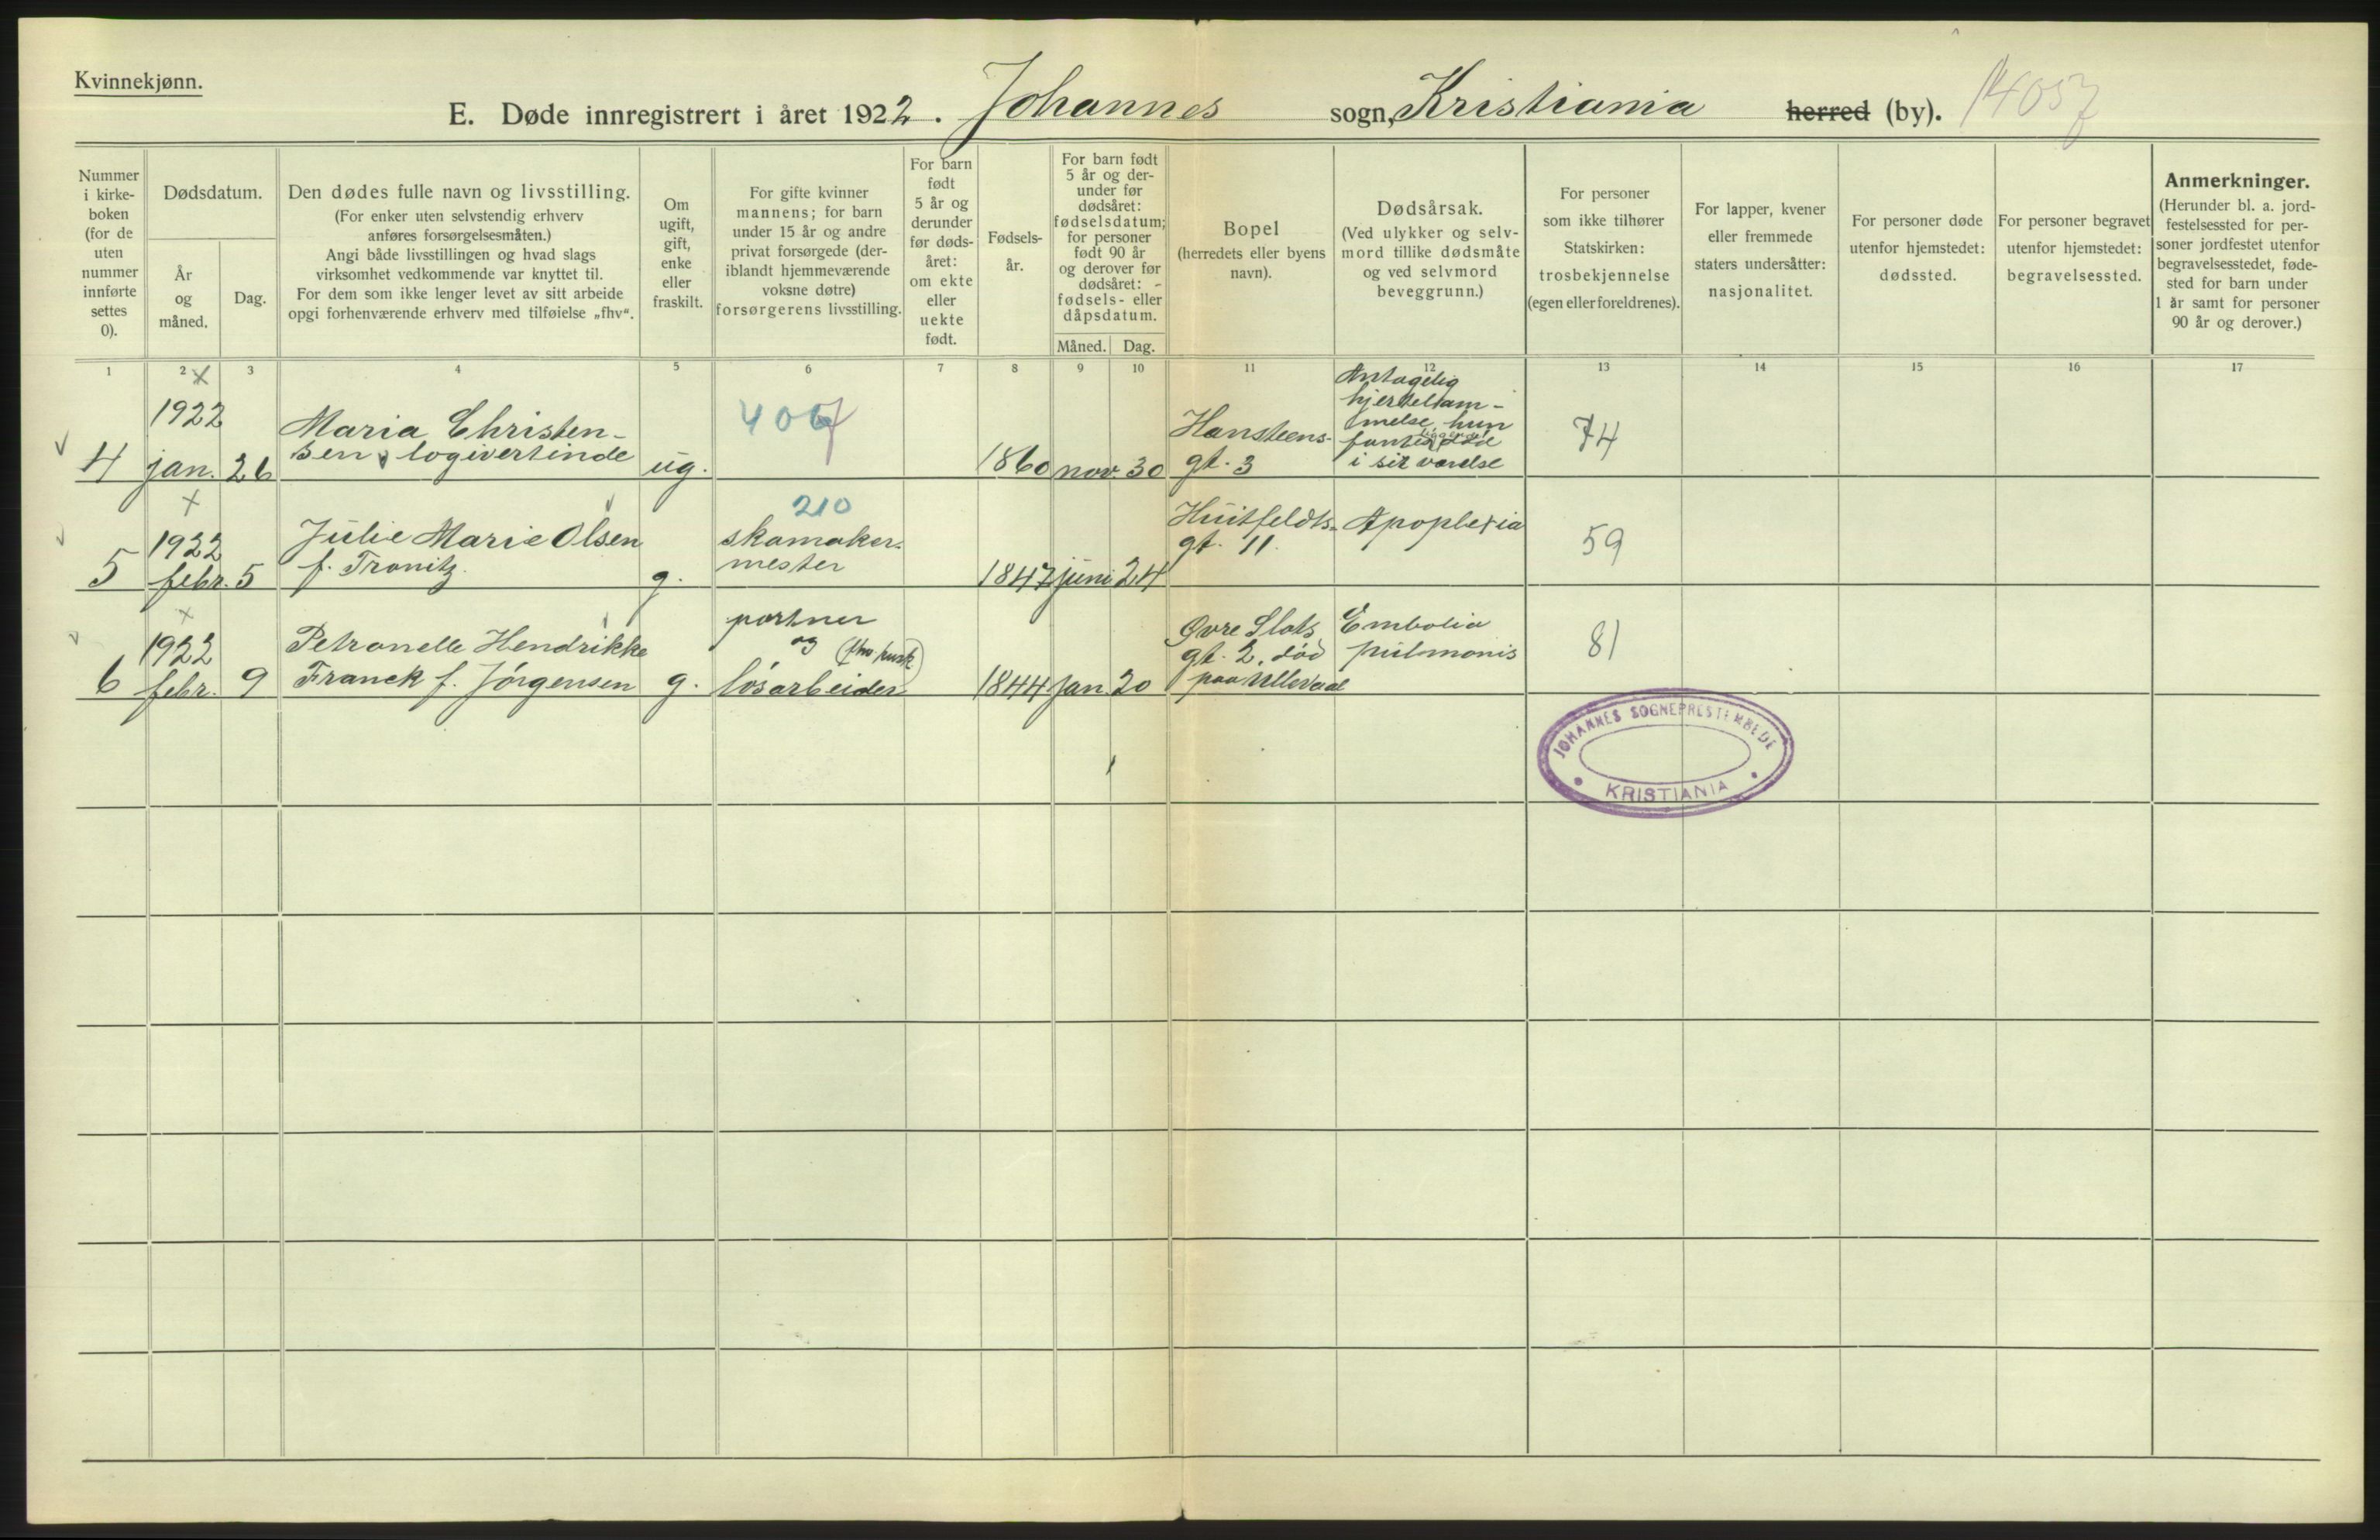 Kvinnekjønn.
E. Døde innregistrert i året 1922. Johannes sogn, Kristiania herred (by). 14057
Nummer
i kirke-
boken
(for de
uten
nummer
innførte
settes
0).
Dødsdatum.
År
og
måned.
Dag.
Den dødes fulle navn og livsstilling.
(For enker uten selvstendig erhverv
anføres forsørgelsesmåten.)
Angi både livsstillingen og hvad slags
virksomhet vedkommende var knyttet til.
For dem som ikke lenger levet av sitt arbeide
opgi forhenværende erhverv med tilføielse „fhv“.
Om
ugift,
gift,
enke
eller
fraskilt.
For gifte kvinner
mannens; for barn
under 15 år og andre
privat forsørgede (der-
iblandt hjemmeværende
voksne døtre)
forsørgerens livsstilling.
For barn
født
5 år og
derunder
før døds-
året:
om ekte
eller
uekte
født.
Fødsels-
år.
For barn født
5 år og der-
under før
dødsåret:
fødselsdatum;
for personer
født 90 år
og derover før
dødsåret:
fødsels- eller
dåpsdatum.
Måned. Dag.
Bopel
(herredets eller byens
navn).
Dødsårsak.
(Ved ulykker og selv-
mord tillike dødsmåte
og ved selvmord
beveggrunn.)
For personer
som ikke tilhører
Statskirken:
trosbekjennelse
(egen eller foreldrenes).
For lapper, kvener
eller fremmede
staters undersåtter:
nasjonalitet.
For personer døde
utenfor hjemstedet:
dødssted.
For personer begravet
utenfor hjemstedet:
begravelsessted.
Anmerkninger.
(Herunder bl. a. jord-
festelsessted for per-
soner jordfestet utenfor
begravelsesstedet, føde-
sted for barn under
1 år samt for personer
90 år og derover.)
1 2 3 4 5 6 7 8 9 10 11 12 13 14 15 16 17
4
1922
jan. 26
Maria Christen-
sen, logivertinde
ug.
406
1860 nov. 30
Hansteens-
gt. 3
Antagelig
hjertelam-
melse, hun
fantes død
i sit værelse
74
5
1922
febr. 5
Julie Marie Olsen
f. Tronitz.
g.
210
skomaker-
mester
1847 juni 24
Huitfeldts-
gt. 11.
Apoplexia
59
6
1922
febr. 9
Petronelle Hendrikke
Franck f. Jörgensen
g.
portner
og
lösarbeider
1844 jan. 20
Øvre Slots
gt. 2, död
paa Ullevaal
Embolia
pulmonis
81
JOHANNES SOGNEPRESTEMBEDE
KRISTIANIA